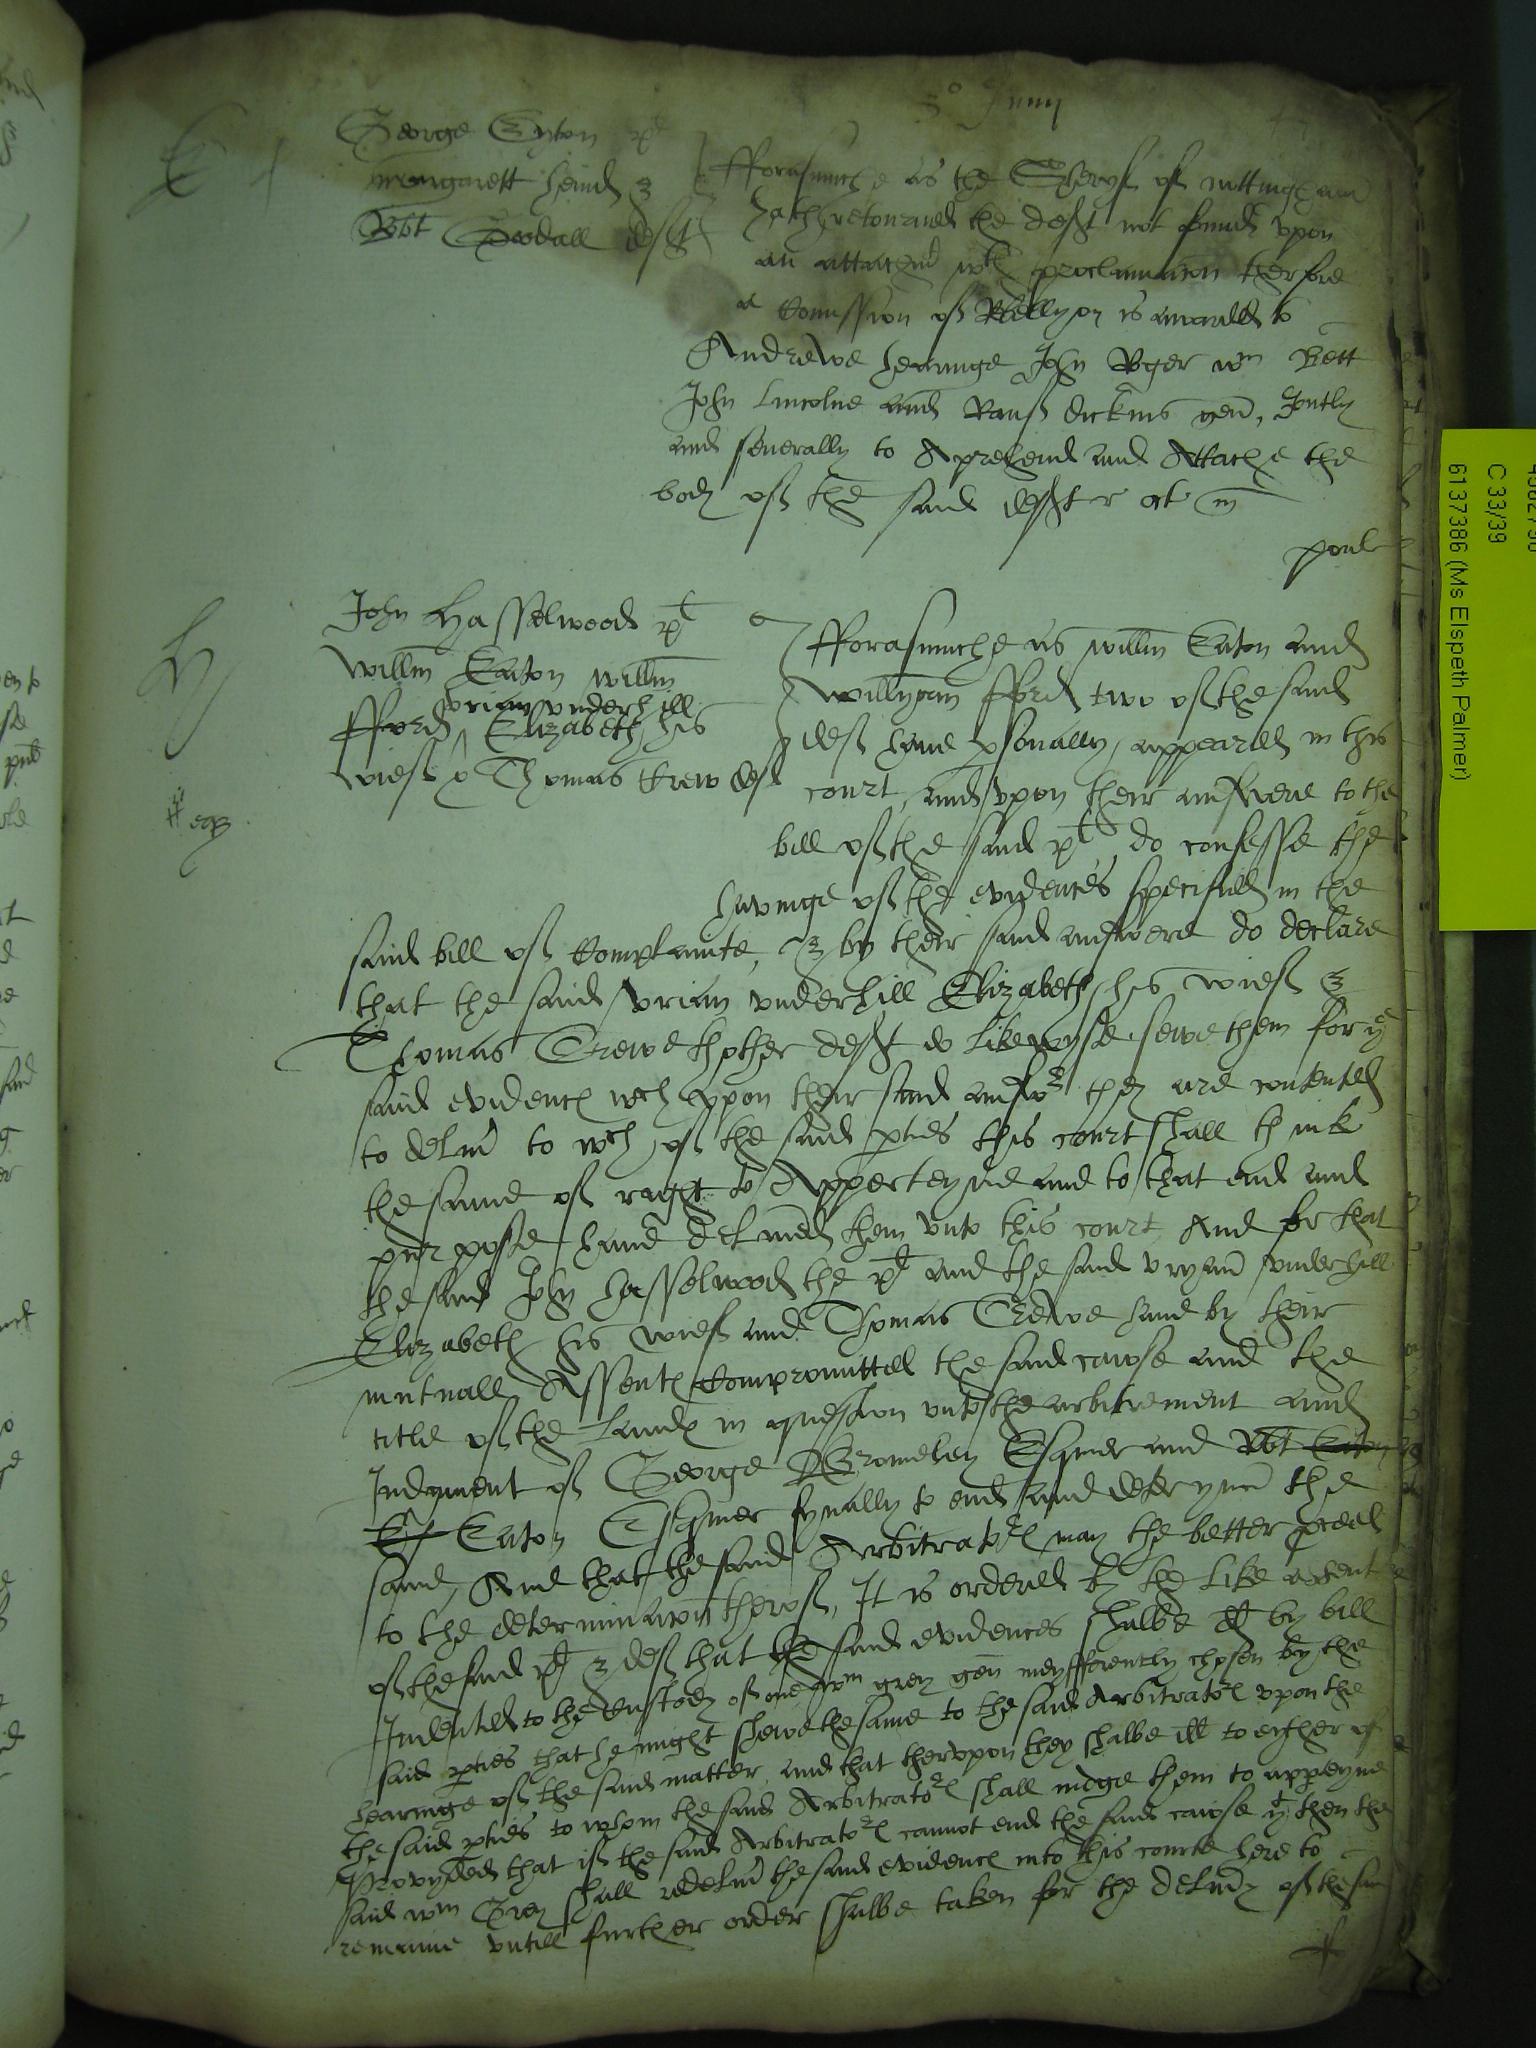 5o Junij
George Eyton plt
Margarett Heind &
Robt Goodall deft
E
fforasmuche as the Sheryf of nottingham
hath retourned the deft not founde vpon
an attachmt wth proclamacon therfore
a Comission of Rebellyon is awarded to
Andrewe Hearinge John Roger wm Bett
John Lincolne and Rauf dickins gen, Jointly
and seuerally to Aprehend and Attache the
body of the said deft
powle
John Hasselwood plt
willm Eaton willm
vrian vnderhill
fford Elizabeth his
wief & Thomas Crew deft
H
fforasmuche as willm Eaton and
Willyam fford two of the said
def haue psonally appeared in this
court, and vpon their answere to the
bill of the said plt do confesse the
havinge of the evidences specified in the
said bill of Complainte, & by their said answere do declare
that the said vrian vnderhill Elizabeth his wief &
Thomas Crewe thother deft do likewyse sewe them for ye
said evidence wch vpon their said answr they are contented
to deliu to wch of the said pties this court shall think
the same of right to Apperteyne and to that end and
purpose haue deliued them vnto this court And for that
the said John Hasselwood the plt and the said vryan vnderhill
Elizabeth his wief and Thomas Crewe haue by their
mutuall Assente Compromitted the said cawse and the
title of the Lande in question vnto the arbitrement and
Judgment of George Bromeley Esquier and Robt Eaton
Eaton Esquier fynally to end and determyne the
same, And that the said Arbitrators may the better proceed
to the determinacon therof, It is ordered by the like assent
of the said plt & def that the said evidences shalbe dd by bill
Indented to the custody of one wm grey gen indyfferently chosen by the
said pties that he might shewe the same to the said Arbitrators vpon the
hearinge of the said matter, and that thervpon they shalbe dd to eyther of
the said pties to whom the said Arbitrators shall iudge them to apperteyne
Provyded that if the said Arbitrators cannot end the said cawse yt then the
said wm Grey shall redeliu the said evidence into this courte here to
remaine vntill further order shalbe taken for the deliuy of the same
C 33/39
6137386 (Ms Elspeth Palmer)